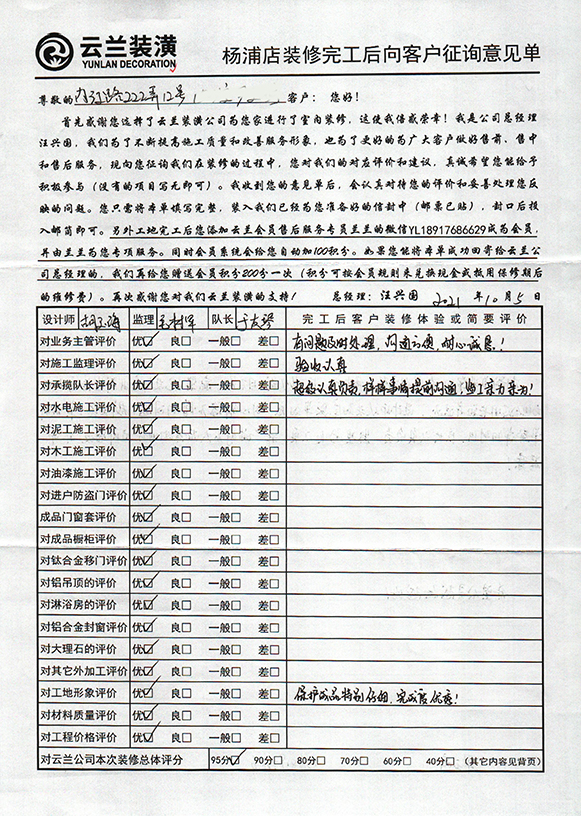 云兰装潢
YUNLAN DECORATION
杨浦店装修完工后向客户征询意见单
尊敬的 内江路222弄12号 客户：您好！
首先感谢您选择了云兰装潢公司为您家进行了室内装修，这使我倍感荣幸！我是公司总经理
汪兴国，我们为了不断提高施工质量和改善服务形象，也为了更好的为广大客户做好售前、售中
和售后服务，现向您征询我们在装修的过程中，您对我们的对应评价和建议，真诚希望您能给予
积极参与（没有的项目写无即可）。我收到您的意见单后，会认真对待您的评价和妥善处理您反
映的问题。您只需将本单填写完整，装入我们已经为您准备好的信封中（邮票已贴），封口后投
入邮筒即可。另外工地完工后您添加云兰会员售后服务专员兰兰的微信YL18917686629成为会员，
并由兰兰为您专项服务。同时会员系统会给您自动加100积分。如果您能将本单成功回寄给云兰公
司总经理的，我们再给您赠送会员积分200分一次（积分可按会员规则来兑换现金或抵用保修期后
的维修费）。再次感谢您对我们云兰装潢的支持！ 总经理：汪兴国 2021年10月5日
设计师 监理 队长 完工后客户装修体验或简要评价
对业务主管评价 优☑ 良□ 一般□ 差□ 有问题及时处理，沟通方便，耐心诚恳！
对施工监理评价 优☑ 良□ 一般□ 差□ 验收认真
对承揽队长评价 优☑ 良□ 一般□ 差□ 超级认真负责，样样事情提前沟通，施工亲力亲为！
对水电施工评价 优☑ 良□ 一般□ 差□
对泥工施工评价 优☑ 良□ 一般□ 差□
对木工施工评价 优☑ 良□ 一般□ 差□
对油漆施工评价 优☑ 良□ 一般□ 差□
对进户防盗门评价 优☑ 良□ 一般□ 差□
成品门窗套评价 优☑ 良□ 一般□ 差□
对成品橱柜评价 优☑ 良□ 一般□ 差□
对钛合金移门评价 优☑ 良□ 一般□ 差□
对铝吊顶的评价 优☑ 良□ 一般□ 差□
对淋浴房的评价 优☑ 良□ 一般□ 差□
对铝合金封窗评价 优☑ 良□ 一般□ 差□
对大理石的评价 优☑ 良□ 一般□ 差□
对其它外加工评价 优☑ 良□ 一般□ 差□
对工地形象评价 优☑ 良□ 一般□ 差□ 保护成品特别仔细，完成度优秀！
对材料质量评价 优☑ 良□ 一般□ 差□
对工程价格评价 优☑ 良□ 一般□ 差□
对云兰公司本次装修总体评分 95分☑ 90分□ 80分□ 70分□ 60分□ 40分□（其它内容见背页）